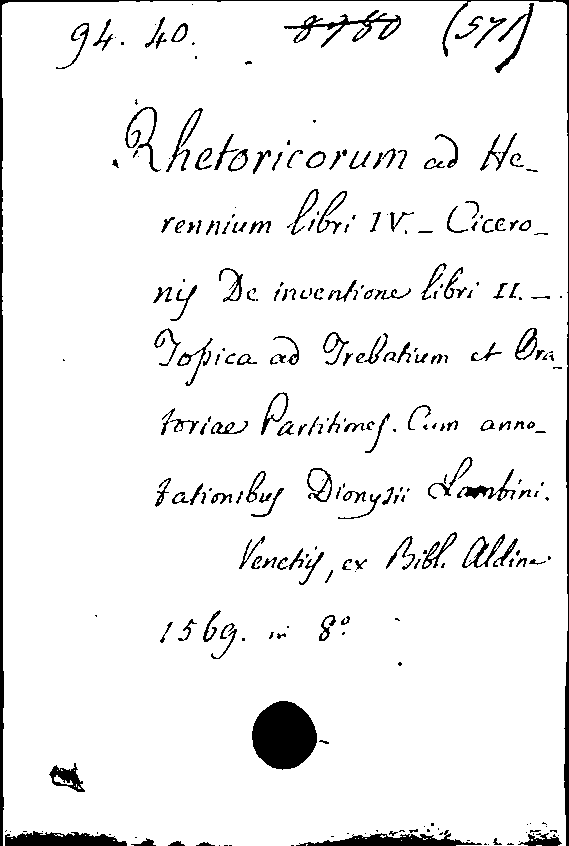 94. 40. 8780 (571)
Rhetoricorum ad He-
rennium libri IV. - Cicero-
nis De inventione libri II. -
Topica ad Trebatium et Ora-
toriae Partitiones. Cum anno-
tationibus Dionysii Lambini.
Venetiis, ex Bibl. Aldina
1569. in 8º